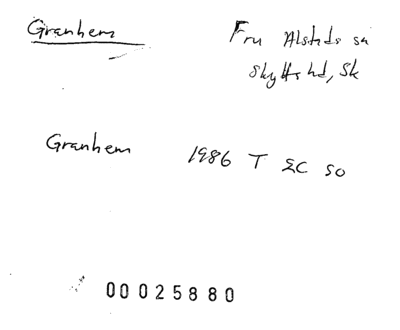 Granhem
Fru Alstads sn
Skytts hd, Sk
Granhem 1986 T ΣC so
00025880